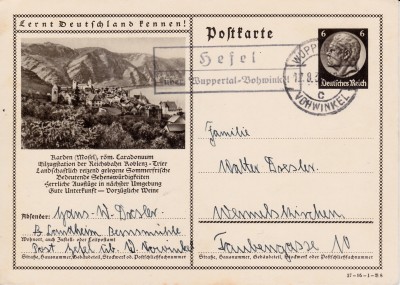 Lernt Deutschland kennen!
Postkarte
6 6
Deutsches Reich
Hefel
über Wuppertal-Vohwinkel
WUPPERTAL
c
VOHWINKEL
Karden (Mosel), röm. Caradonum
Eilzugstation der Reichsbahn Koblenz-Trier
Landschaftlich reizend gelegene Sommerfrische
Bedeutende Sehenswürdigkeiten
Herrliche Ausflüge in nächster Umgebung
Gute Unterkunft — Vorzügliche Weine
Absender: Hans-W. Dorsler
Landheim
Wohnort, auch Zustell- oder Leitpostamt
Post Hefel üb. W.
Straße, Hausnummer, Gebäudeteil, Stockwerk od. Postschließfachnummer
Familie
Walter Dorsler
Wermelskirchen
Taubengasse 10
Straße, Hausnummer, Gebäudeteil, Stockwerk oder Postschließfachnummer